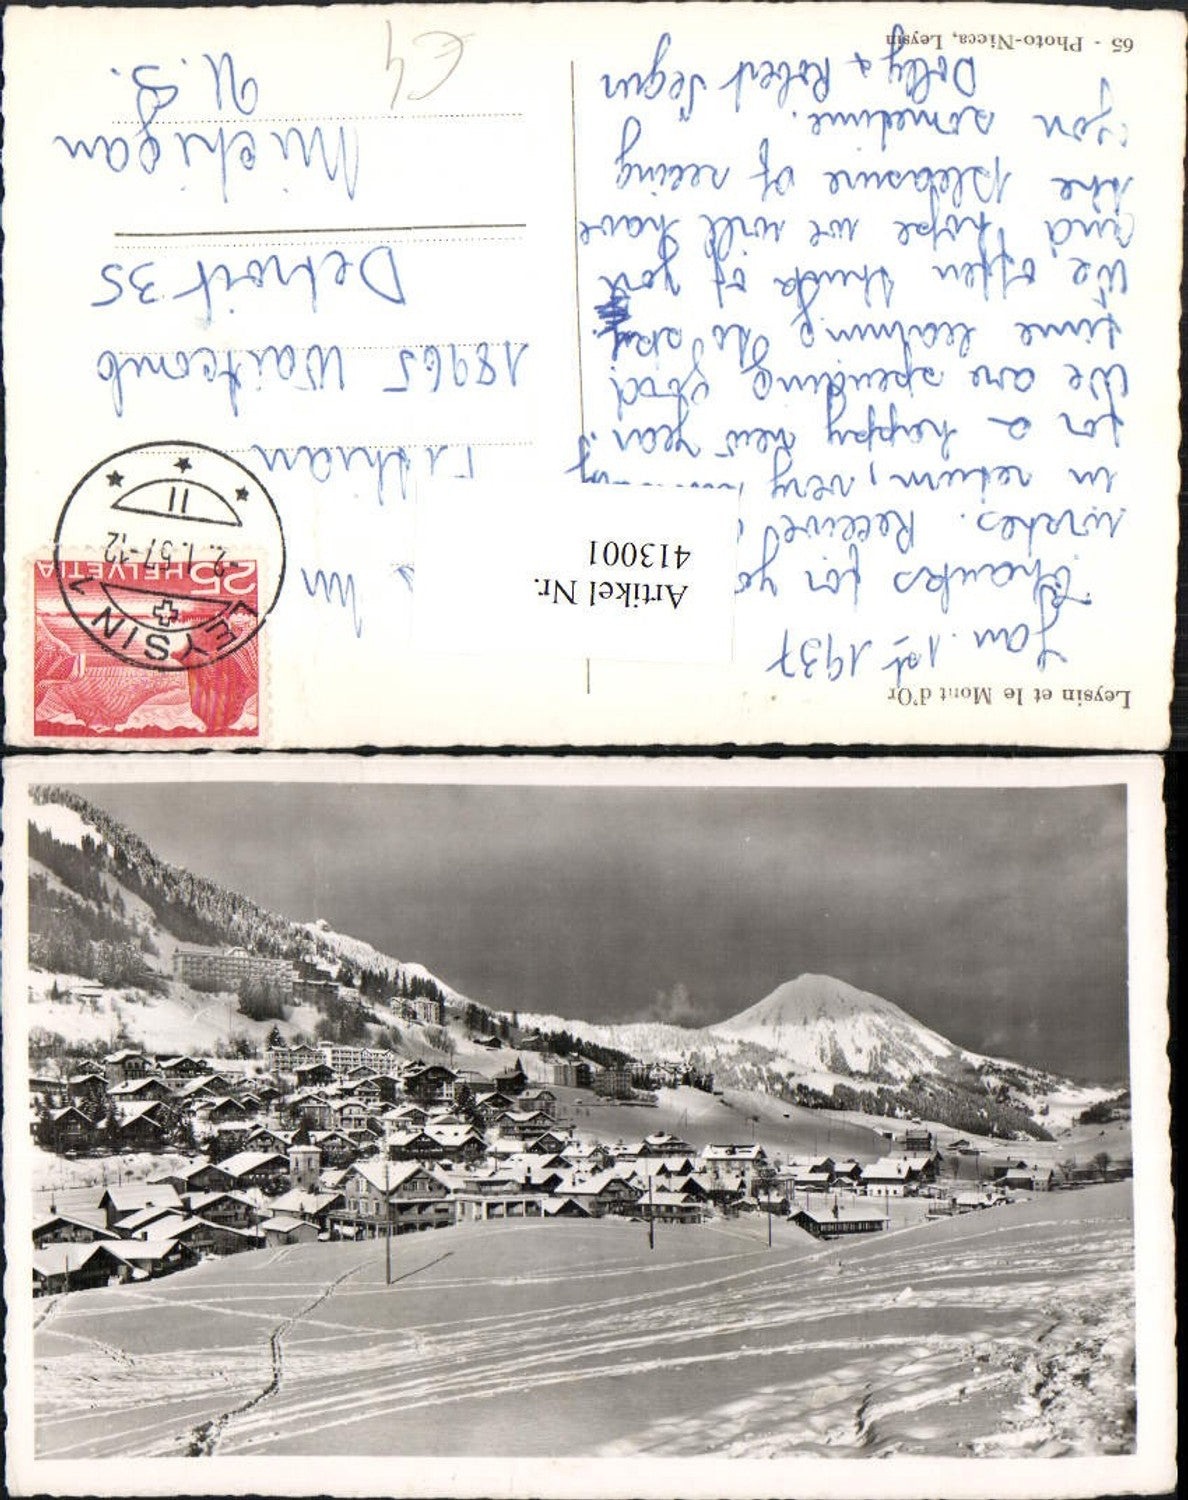 Leysin et le Mont d'Or
Jan. 1st 1937
Thanks for yo
wishes. Received
in return, very
for a happy new year!
We are spending good
time learning to ski.
We often think of you
and hope we will have
the pleasure of seeing
you sometime.
Dolly & Robert Segur
65 - Photo-Nicca, Leysin
Artikel Nr.
413001
HELVETIA
25
LEYSIN 1
-2.1.57-12
11
Mr
18965 Waitcomb
Detroit 35
Michigan
U.S.
€4